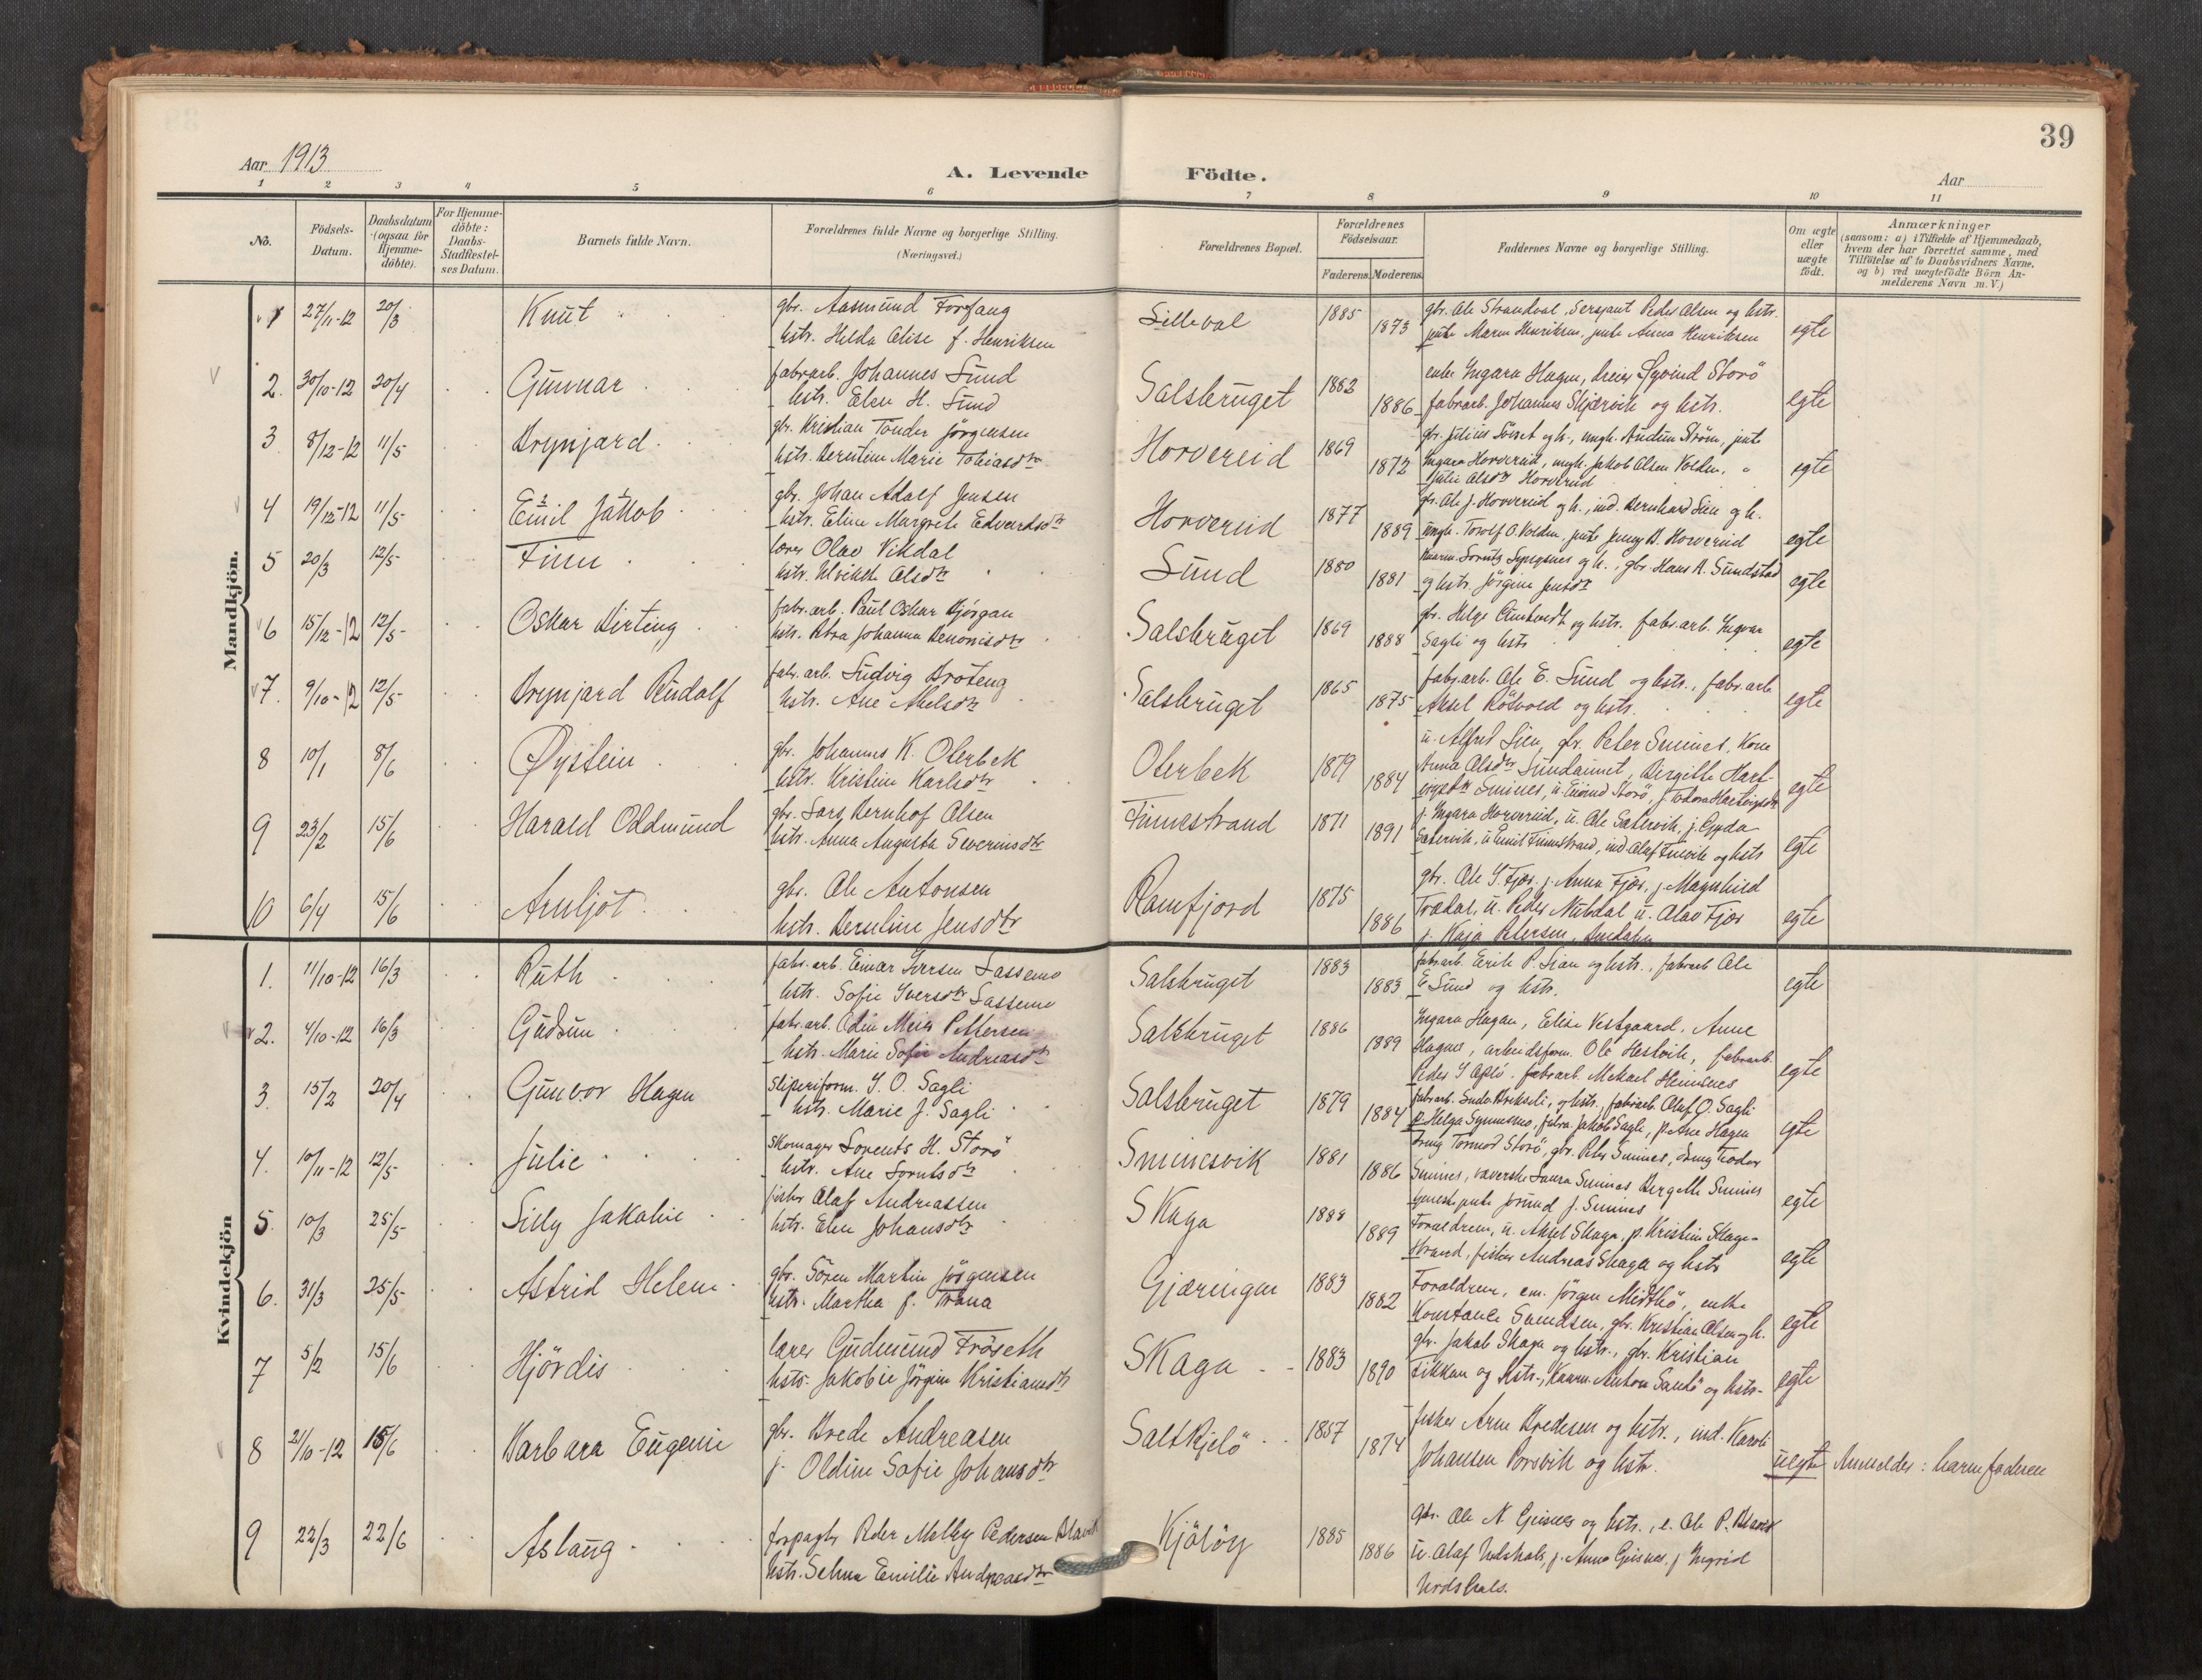 39
Aar 1913
A. Levende Födte.
Aar
1 2 3 4 5 6 7 8 9 10 11
No.
Födsels-Datum.
Daabsdatum (ogsaa for Hjemme-döbte).
For Hjemme-döbte: Daabs-Stadfæstel-ses Datum.
Barnets fulde Navn.
Forældrenes fulde Navne og borgerlige Stilling. (Næringsvei.)
Forældrenes Bopæl.
Forældrenes Födselsaar.
Faderens. Moderens.
Faddernes Navne og borgerlige Stilling.
Om ægte eller uægte födt.
Anmærkninger
(saasom: a) i Tilfælde af Hjemmedaab, hvem der har forrettet samme, med Tilföielse af to Daabsvidners Navne, og b) ved uægtefödte Börn An-melderens Navn m. V.)
Mandkjön.
1 27/11-12 20/3 Knut
gbr. Aasmund Forfang
hstr. Helda Elise f. Henriksen
Lilleval 1885 1873
gbr. Ole Strandval, Sersjant Peder Olsen og hstr.
pute Maren Henriksen, pute Anna Henriksen
egte
2. 30/10-12 20/4 Gunnar
fabrarb. Johannes Sund
hstr. Elen H. Sund
Salsbruget 1882 1886
enke Ingara Hagen, dreier Eyvind Storö
fabrarb. Johannes Skjærvik og hstr.
egte
3 8/12-12 11/5 Brynjard
gbr. Kristian Tonder Jörgensen
hstr. Berntine Marie Tobiasdtr
Horvereid 1869 1872
Ingara Horvereid, ungk. Jakob Olsen Volden
Julie Olsdtr Horvereid
egte
4 19/12-12 11/5 Emil Jakob
gbr. Johan Adolf Jensen
hstr. Eline Margrete Edvardsdtr
Horvereid 1877 1889
gbr. Ole J. Horvereid og h., ind. Bernhard Lien og h.
ungk. Torolf O. Volden, pute Jenny B. Horvereid
egte
5 20/3 12/5 Finn
lærer Olav Vikdal
hstr. Ulrikke Olsdtr
Sund 1880 1881
og h., gbr. Hans A. Sundstad
og hstr. Jörgine Jensdtr
egte
6 15/12-12 12/5 Oskar Birting
fabr.arb. Paul Oskar Bjørgan
hstr. Petra Johanna Benonisdtr
Salsbruget 1869 1888
og hstr. fabr.arb. Ingvar
Sagli og hstr
egte
7. 9/10-12 12/5 Brynjard Rudolf
fabr.arb. Ludvig Bröteng
hstr. Ane Abelsdtr
Salsbruget 1865 1875
fabr.arb. Ole E. Sund og hstr., fabr.arb.
Aksel Rötvold og hstr.
egte
8 10/1 8/6 Øystein
gbr. Johannes K. Oterbek
hstr. Kristine Karlsdtr
Oterbek 1879 1884
u. Alfred Lien, gbr. Peter Smines, Kone
Anna Olsdtr Sundaunet, Birgitte Hart-
vigsdtr Smines, u. Eivind Storö, j. Todora Hartvigsdtr
egte
9 23/2 15/6 Harald Oddmund
gbr. Lars Bernhof Olsen
hstr. Anna Augusta Severinsdtr
Finnestrand 1871 1891
j. Ingara Horvereid, u. Ole Sætervik, j. Gyda
Sætervik, u. Emil Finnestrand, ind. Olaf Finvik og hstr
egte
10 6/4 15/6 Arnljot
gbr. Ole Antonsen
hstr. Berntine Jensdtr
Ramfjord 1875 1886
gbr. Ole S. Fjær, j. Anna Fjær, j. Magnhild
Trædal, u. Peder Nubdal u. Olav Fjær
j. Kaja Petersen,
egte
Kvindekjön
1. 11/10-12 16/3 Ruth
fabr.arb. Einar Iversen Lassemo
hstr. Sofie Iversdtr Lassemo
Salsbruget 1883 1883
fabrarb. Erik P. Lian og hstr., fabrarb Ole
E. Sund og hstr.
egte
2. 4/10-12 16/3 Gudrun
fabr.arb. Odin Meier Pettersen
hstr. Marie Sofie Andreasdtr
Salsbruget 1886 1889
Ingara Hagen, Elise Vestgaard, Anne
Hagnes, arbeidsform. Ole Hestvik, fabrarb.
fabrarb. Mekael Heimsnes
egte
3. 15/2 20/4 Gunvor Hagen
Sliperiform. J. O. Sagli
hstr. Marie J. Sagli
Salsbruget 1879 1884
og hstr, fabrarb. Olaf O. Sagli
Jakob Sagli, p. Ane Hagen
egte
4. 10/11-12 12/5 Julie
Skomager Lorents H. Storö
hstr. Ane Lorntsdtr
Sminesvik 1881 1886
dreng Tormod Storö, gbr. Peter Smines, dreng Teodor
Smines, væverske Laura Smines Bergette Smines
tjenestepute Jorund J. Smines
egte
5. 10/3 25/5 Lilly Jakobie
fisker Olaf Andreassen
hstr. Elen Johansdtr
Skaga 1888 1889
Forældrene, u. Aksel Skaga, p. Kristine Skage-
strand, fisker Andreas Skaga og hstr
egte
6. 31/3 25/5 Astrid Helene
gbr. Sören Martin Jörgensen
hstr. Martha f. Træna
Gjæringen 1883 1882
Forældrene, em. Jörgen Midthö, enke
Konstance Svendsen, gbr. Kristian Olsen og h.
egte
7 5/2 15/6 Hjördis
lærer Gudmund Fröseth
hstr. Jakobie Jörgine Kristiansdtr
Skaga 1883 1890
gbr. Jakob Skaga og hstr., gbr. Kristian
Fikkan og hstr., Kaarm. Anton Sandö og hstr.
egte
8 21/10-12 15/6 Barbara Eugenie
gbr. Brede Andreasen
p. Oldine Sofie Johansdtr
Saltkjelö 1857 1874
fisker Arne Bredesen og hstr., ind. Karoli
Johansen Porsvik og hstr.
uegte Anmelder: barnefaderen
9 22/3 22/6 Aslaug
forpagter Peder Melby Pedersen
hstr. Selma Emilie Andreasdtr
Kjölöy 1885 1886
gbr. Ole N. Geisnes og hstr., e. Ole P.
u. Olaf Urdshals, j. Anna Geisnes, j. Ingrid
Urdshals.